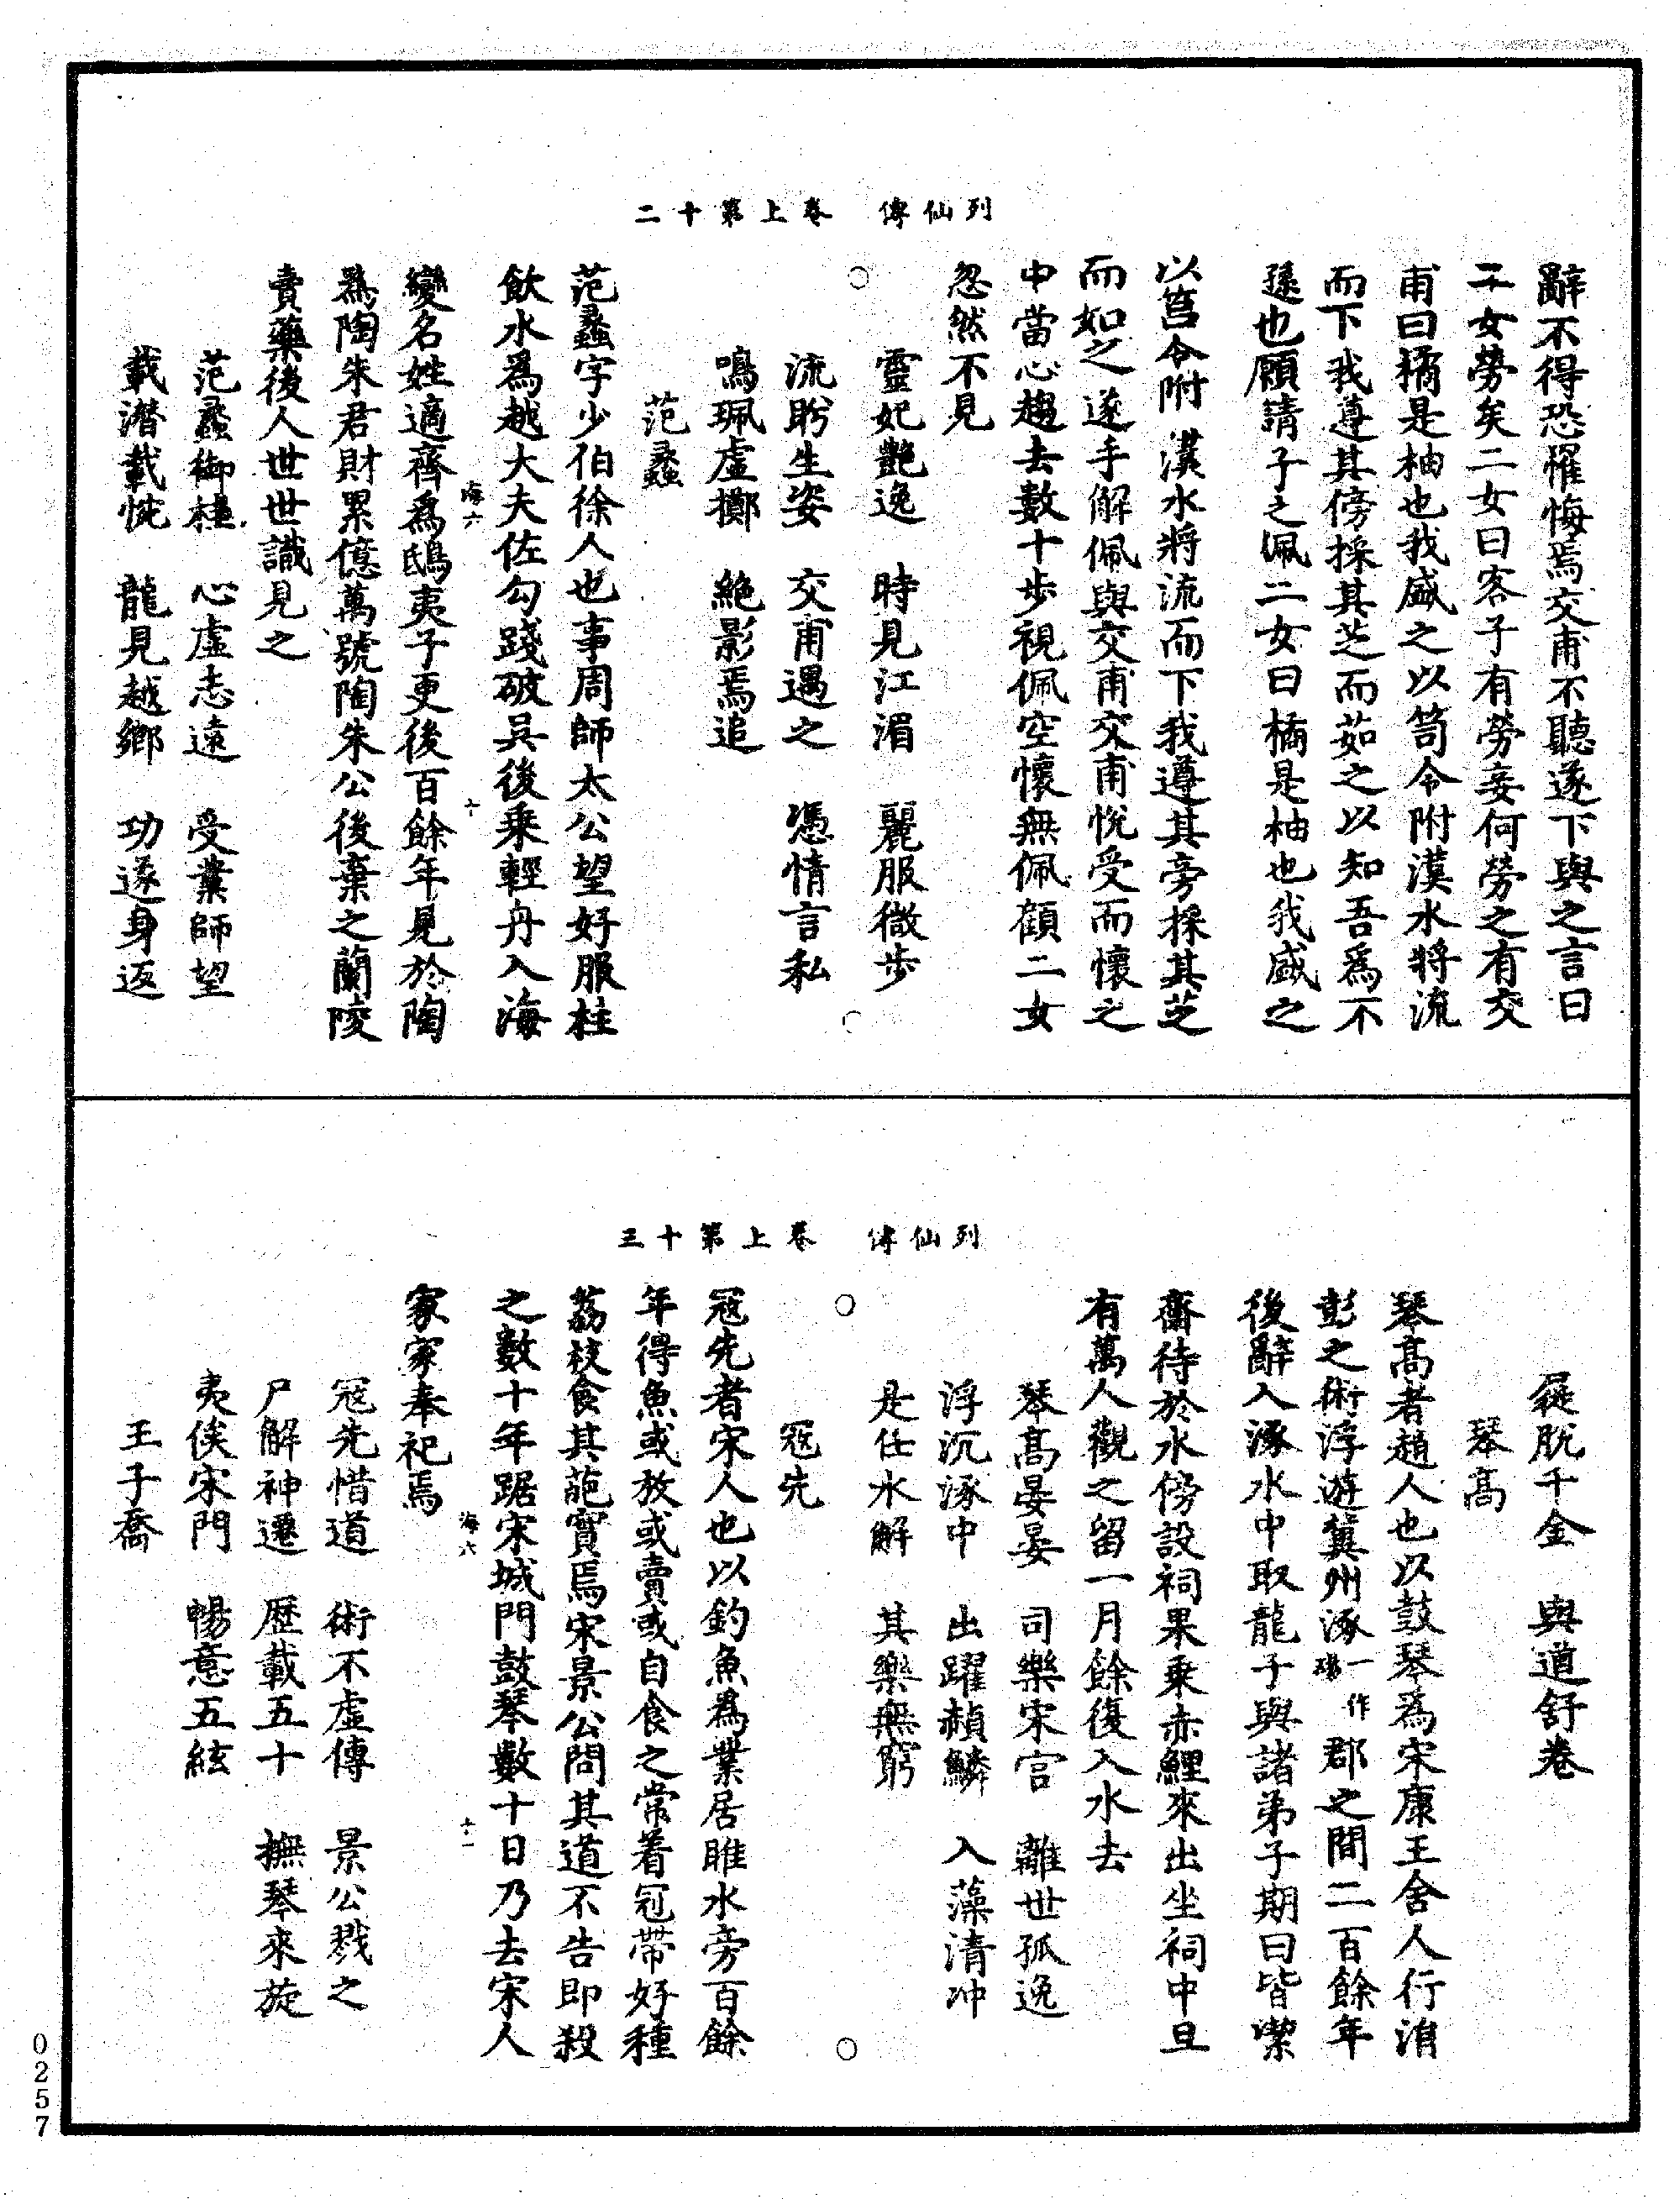 列仙傳　卷上第十二
辭不得恐罹悔焉交甫不聽遂下與之言曰
二女勞矣二女曰客子有勞妾何勞之有交
甫曰橘是柚也我盛之以笥令附漢水將流
而下我遵其傍採其芝而茹之以知吾爲不
遜也願請子之佩二女曰橘是柚也我盛之
以筥令附漢水將流而下我遵其旁採其芝
而如之遂手解佩與交甫交甫悅受而懷之
中當心趨去數十步視佩空懷無佩顧二女
忽然不見
靈妃艷逸　時見江湄　麗服微步
流眄生姿　交甫遇之　憑情言私
鳴珮虛擲　絕影焉追
范蠡
范蠡字少伯徐人也事周師太公望好服桂
飲水爲越大夫佐勾踐破吳後乗輕舟入海
海六　十
變名姓適齊爲鴟夷子更後百餘年見於陶
爲陶朱君財累億萬號陶朱公後棄之蘭陵
賣藥後人世世識見之
范蠡御桂　心虛志遠　受業師望
載潛載惋　龍見越鄉　功遂身返
列仙傳　卷上第十三
屣脫千金　與道舒卷
琴高
琴高者趙人也以鼓琴爲宋康王舍人行涓
彭之術浮遊冀州涿一作碭郡之間二百餘年
後辭入涿水中取龍子與諸弟子期曰皆潔
齋待於水傍設祠果乗赤鯉來出坐祠中旦
有萬人觀之留一月餘復入水去
琴高晏晏　司樂宋宮　離世孤逸
浮沉涿中　出躍赬鱗　入藻清冲
是任水解　其樂無窮
寇先
寇先者宋人也以釣魚爲業居睢水旁百餘
年得魚或放或賣或自食之常着冠帶好種
荔枝食其葩實焉宋景公問其道不告即殺
之數十年踞宋城門鼓琴數十日乃去宋人
海六　十一
家家奉祀焉
寇先惜道　術不虛傳　景公戮之
尸解神遷　歷載五十　撫琴來旋
夷俟宋門　暢意五絃
王子喬
0257